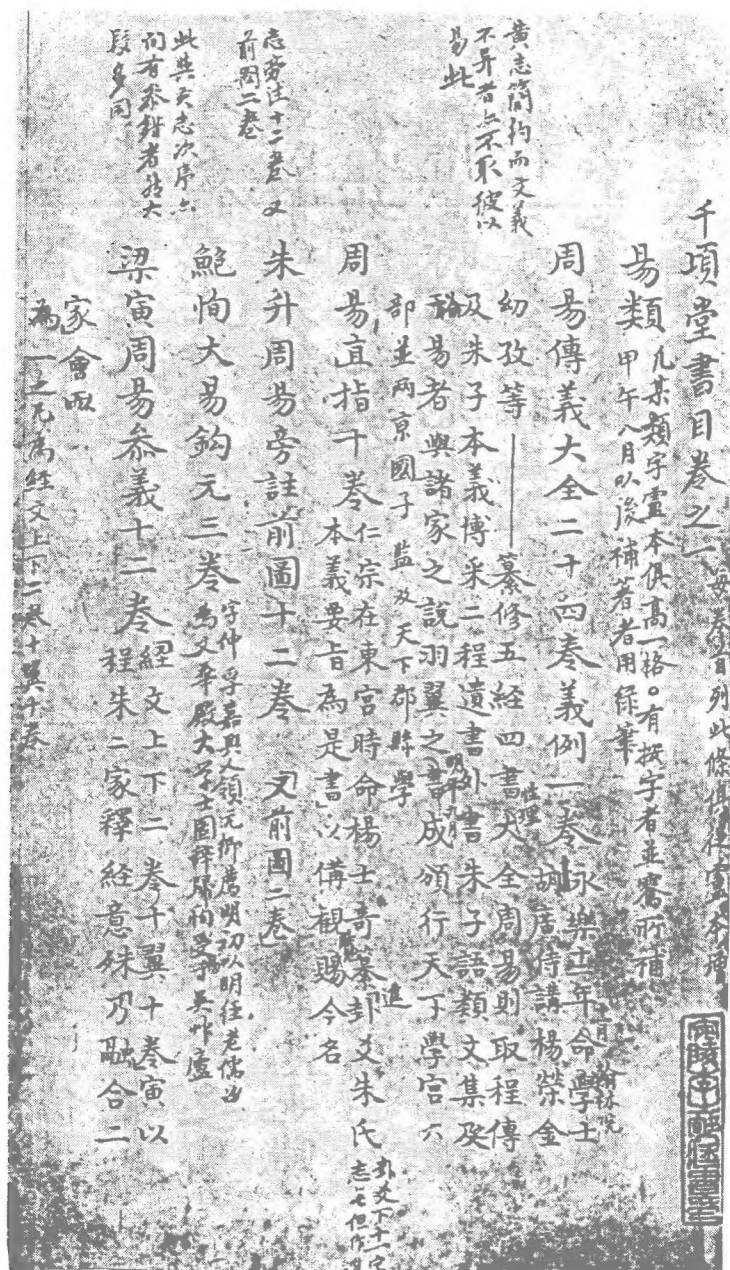 千頃堂書目卷之一
每卷首列此條俱從盧本增
易類
凡某類字盧本俱高一格。有按字者並騫所補
甲午八月以後補著者用綠筆
周易傳義大全二十四卷義例一卷
永樂十二年命學士
十一月
翰林院
胡廣侍講楊榮金
幼孜等
纂修五經四書大全周易則取程傳
性理
及朱子本義博采二程遺書外書朱子語類文集及
易者與諸家之說羽翼之書成頒行天下學宮六
明年九月
部並兩京國子監及天下郡縣學
周易直指十卷
仁宗在東宮時命楊士奇纂卦爻朱氏
本義要旨為是書以備觀賜今名
進
卦爻下十一字
朱升周易旁註前圖十二卷
又前圖二卷
鮑恂大易鈎元三卷
字仲孚嘉興人領元鄉薦明初以明經老儒
為文華殿大學士固辭歸
梁寅周易參義十二卷
經文上下二卷十翼十卷寅以
程朱二家釋經意殊乃融合二
家會
為一之凡為經文上下二卷十翼十卷
黃志簡約而文義
不異者亦不取彼以
易此
志旁注十二卷又
前圖二卷
此與黃志次序亦
間有參錯者然大
段多同